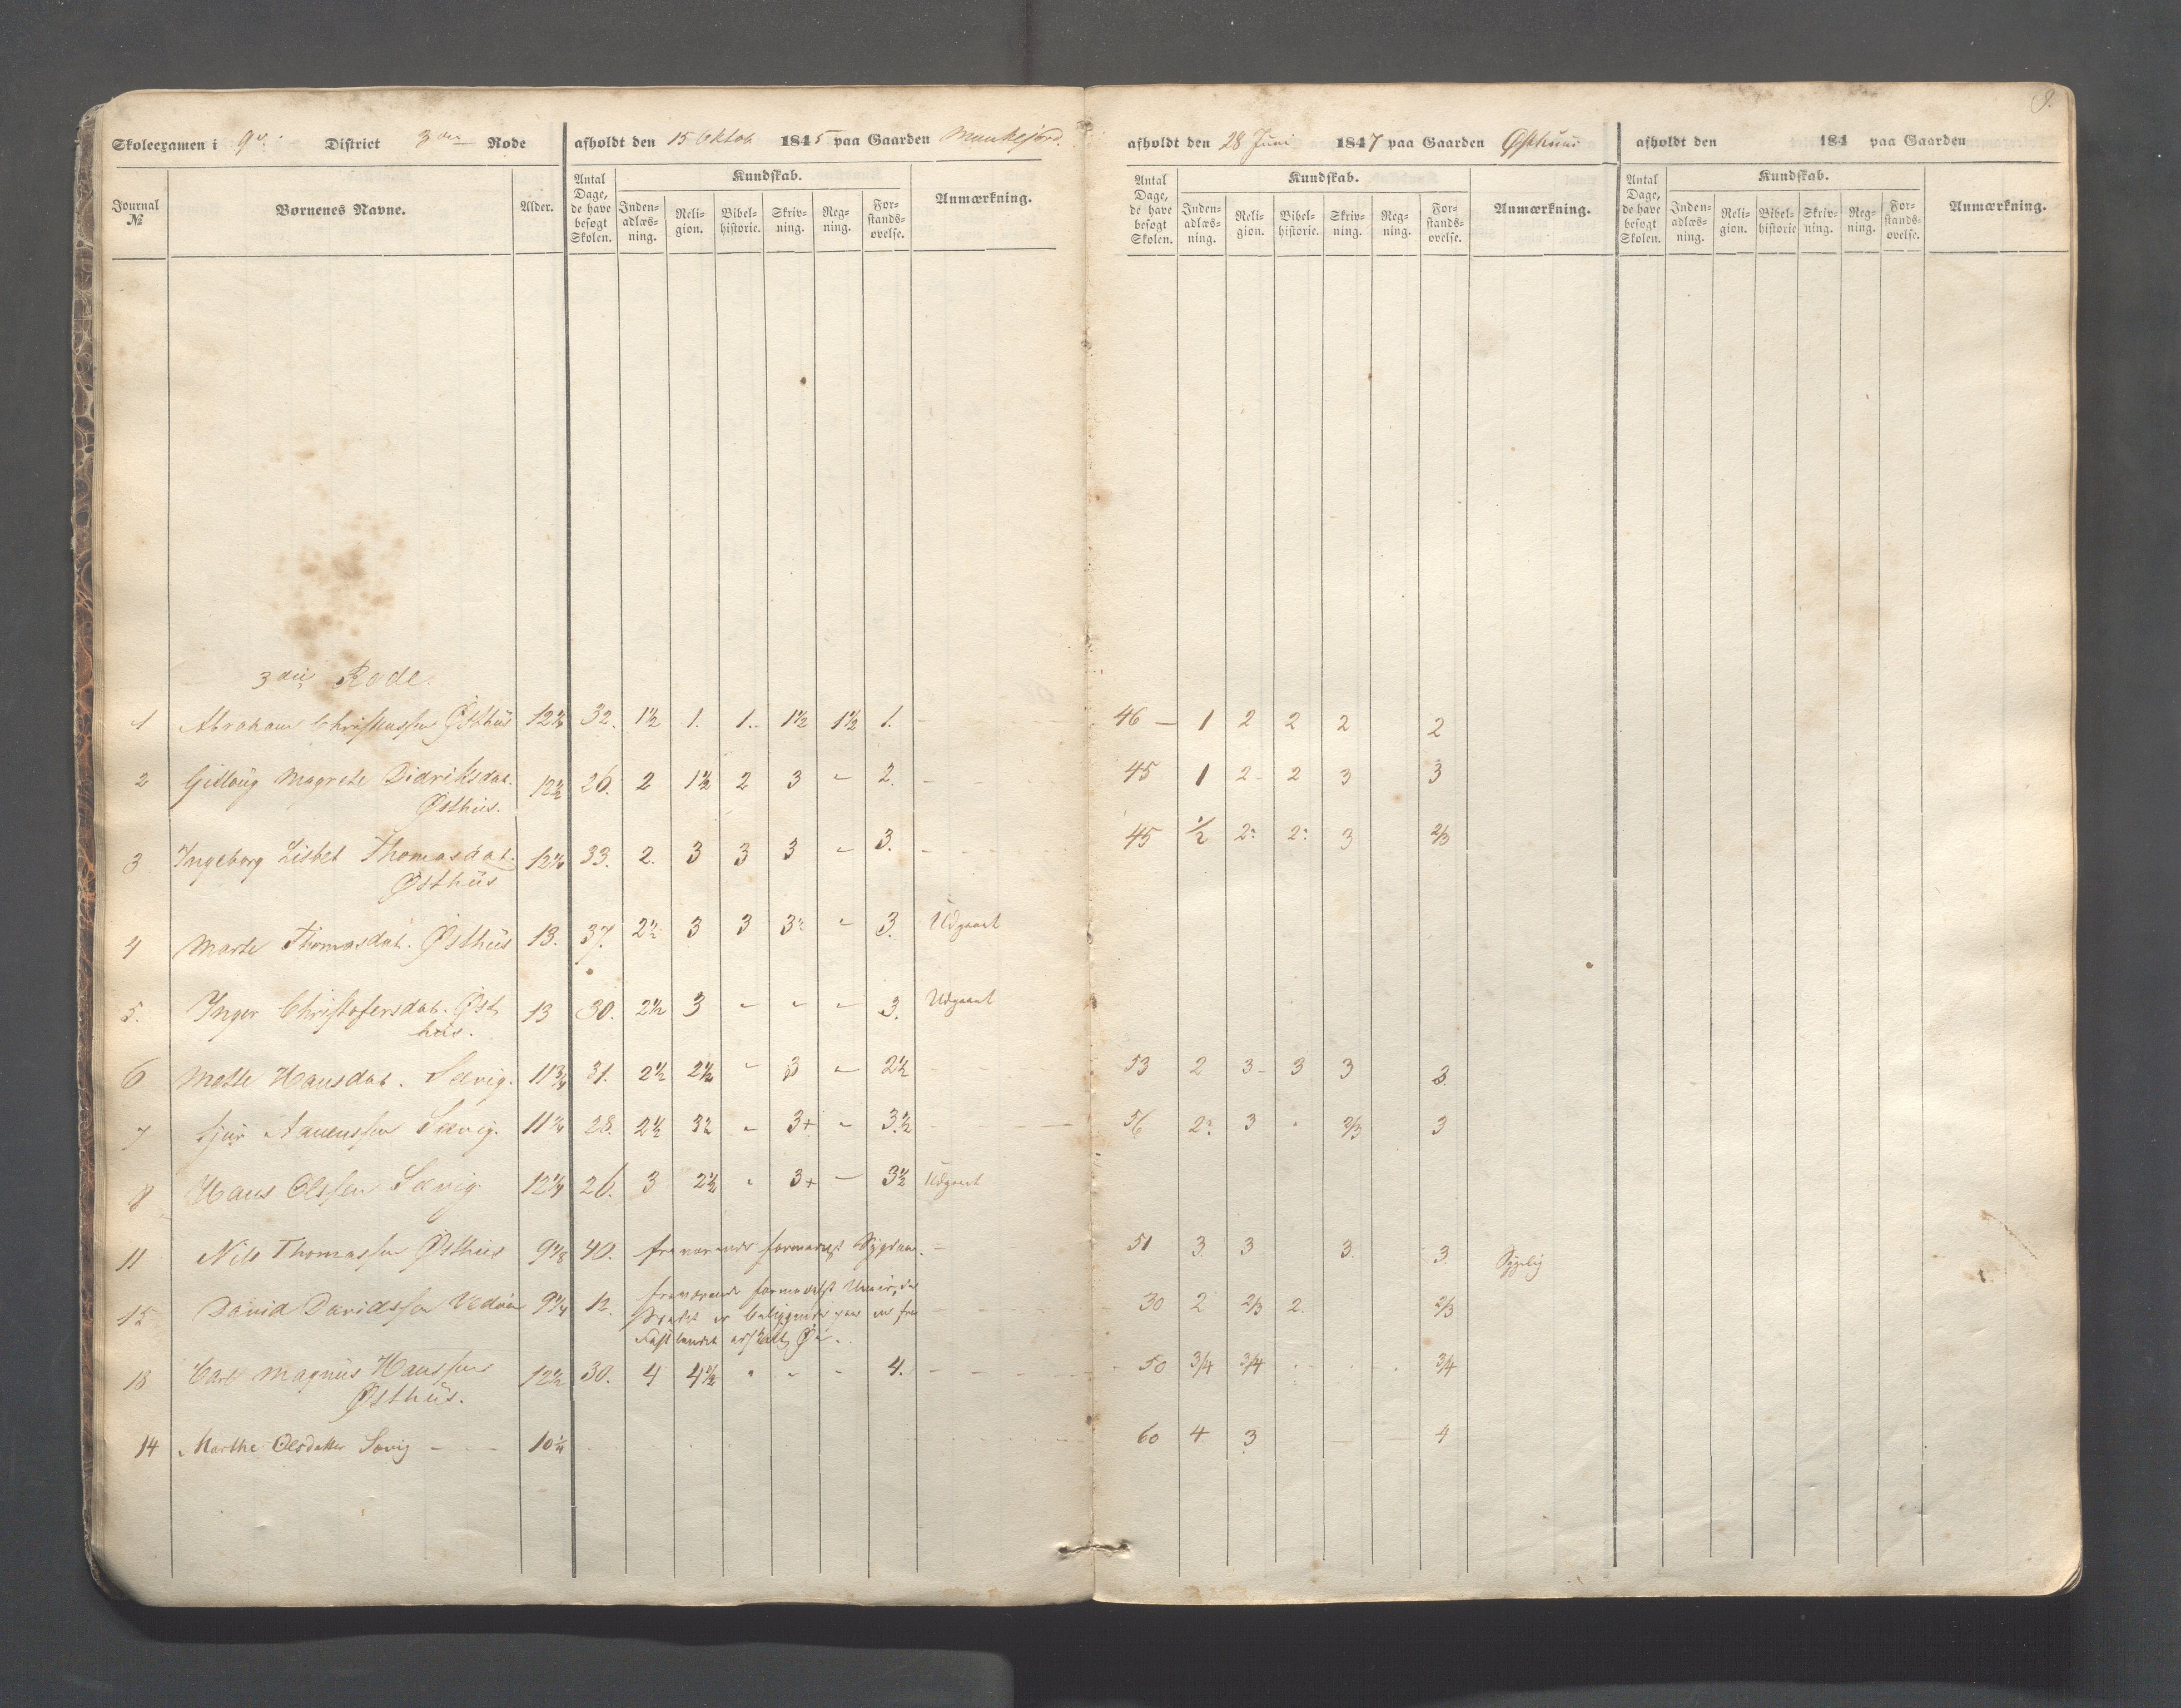 9.
Skoleexamen i 9de District 3die Rode afholdt den 15 Oktob 1845 paa Gaarden Munkejord.
afholdt den 28 Juni 1847 paa Gaarden Østhuus afholdt den 184 paa Gaarden
Journal № Børnenes Navne. Alder. Antal Dage, de have besøgt Skolen. Kundskab. Inden-adlæs-ning. Reli-gion. Bibel-historie. Skriv-ning. Reg-ning. For-stands-øvelse. Anmærkning.
Antal Dage, de have besøgt Skolen. Kundskab. Inden-adlæs-ning. Reli-gion. Bibel-historie. Skriv-ning. Reg-ning. For-stands-øvelse. Anmærkning.
Antal Dage, de have besøgt Skolen. Kundskab. Inden-adlæs-ning. Reli-gion. Bibel-historie Skriv-ning. Reg-ning. For-stands-øvelse. Anmærkning.
3die Rode.
1 Abraham Østhüs 32. 1½ 1. 1. 1½ 1½ 1. 46 1 2 2 2 2
2 Magrete Didriksdat. 12½ 26. 2 1½ 2 3 - 2. 45 1 2 2 3 3
Østhüs.
3 Ingeborg Lisbet Thomasdat. 33. 2. 3 3 3 - 3. 45 1/2 2 2 3 2/3
Østhüs
4 Marte Thomasdat. Østhüs 13. 37. 2½ 3 3 3 - 3. Udgaaet
5. Inger Christofersdat. Øst 13 30. 2½ 3 - - - 3. Udgaaet
hüs.
6 Mette Hansdat. Sævig. 11¾ 31. 2½ 2½ - 3 - 2½ 53 2 3 3 3 3
7 Sjur Sævig. 28. 2½ 3½ - 3+ - 3½ 56 2 3 2/3 3
8 Hans Olssen Sævig 12¼ 26. 3 2½ - 3+ - 3½ Udgaaet
11 Nils Thomassen Østhüs 40. fraværende formedelst Sygdom. 51 3 3 3. 3. Sygelig
David Davidssen 9¼ 12. fraværende formedelst Uveir, da
Stedet er beliggende paa en fra
Fastlandet adskilt Ø. 30 2 2/3 2. 2/3
Carl Magnus Hanssen 12½ 30. 4 4½ - - - 4. 50 3/4 3/4 3/4
Østhüs.
14 Marthe Olsdatter Sævig 60 4 3 4